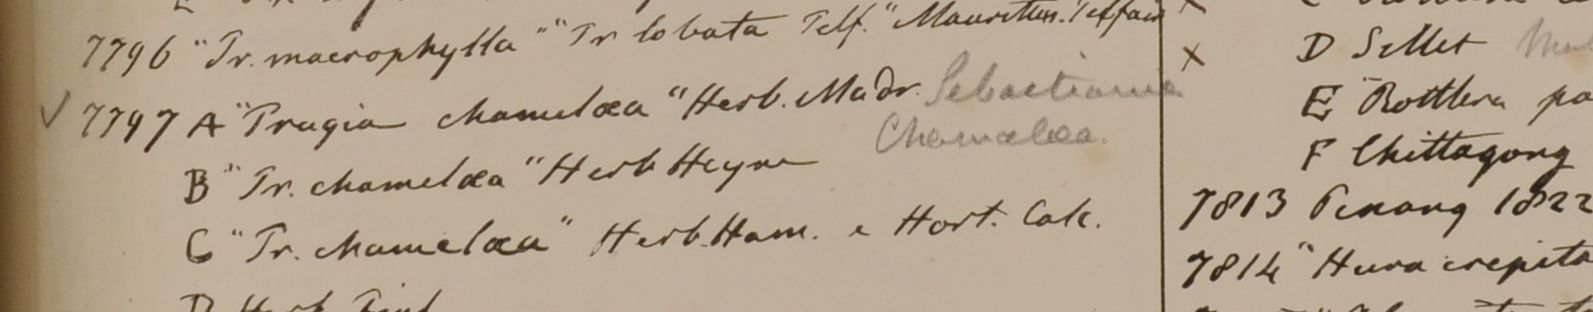 7796 "Tr. macrophylla" "Tr lobata Telf." Mauritius. Telfair
✓ 7797 A "Tragia chamelæa" Herb. Madr. Sebastiania
Chamælea.
B "Tr. chamelæa" Herb Heyne
C "Tr. chamelæa" Herb. Ham. e Hort. Calc.
D Herb
x
x D Sillet
E "Rottlera
F Chittagong
7813 Penang 1822
7814 "Hura crepita